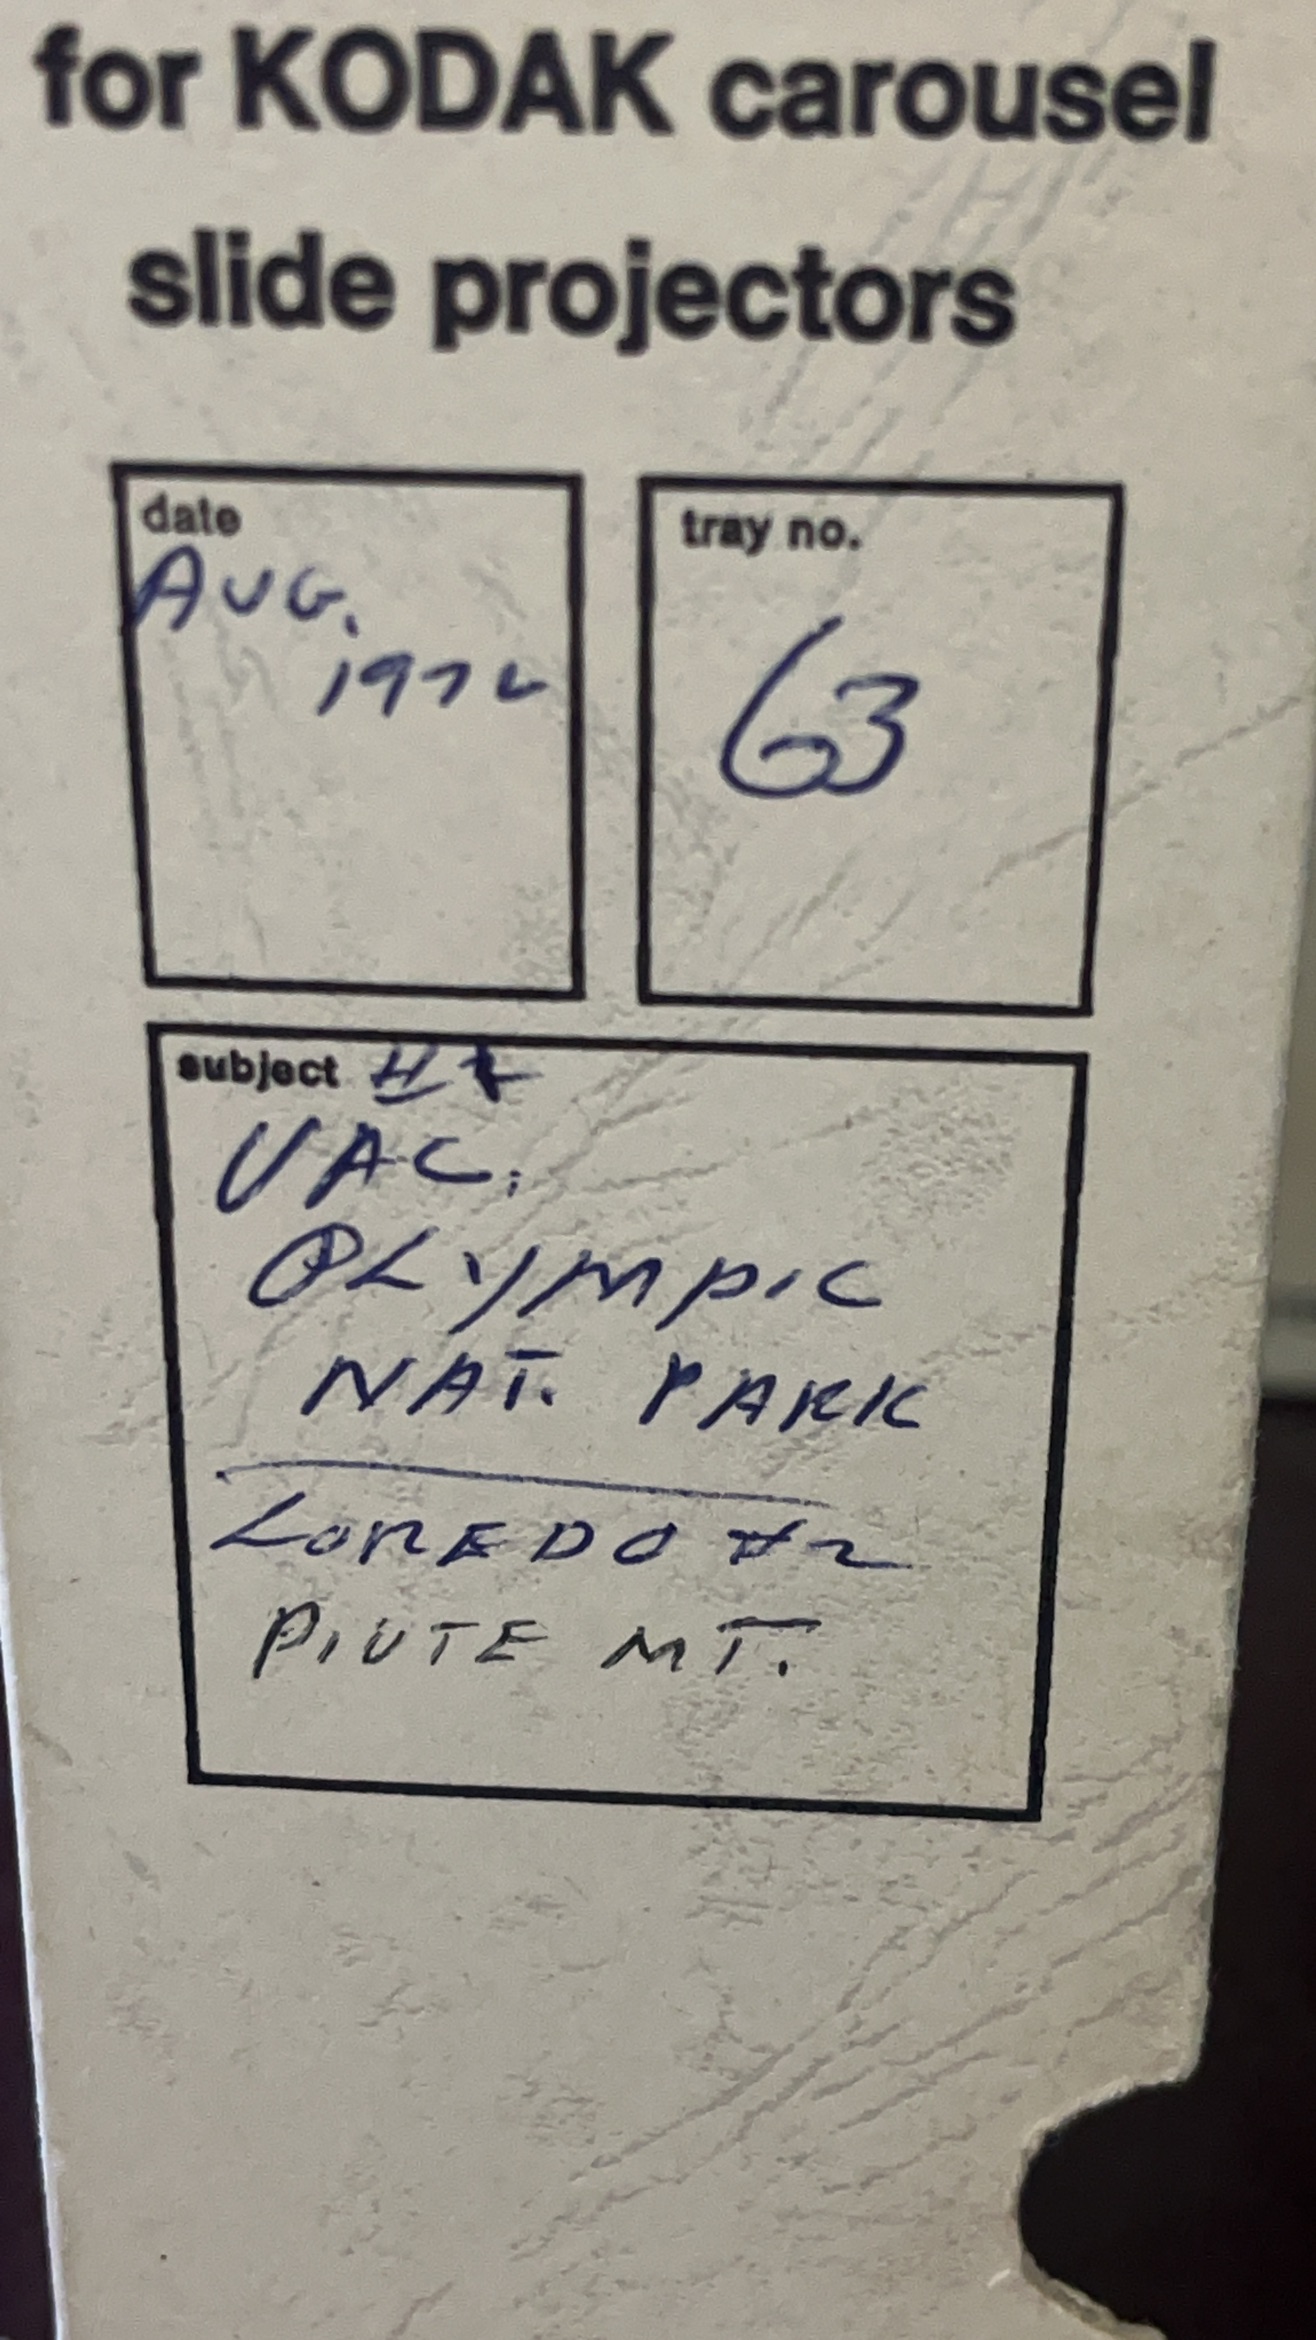 for KODAK carousel
slide projectors
date
AUG.
1972
tray no.
63
subject
VAC.
OLYMPIC
NAT. PARK
LOREDO #2
PIUTE MT.